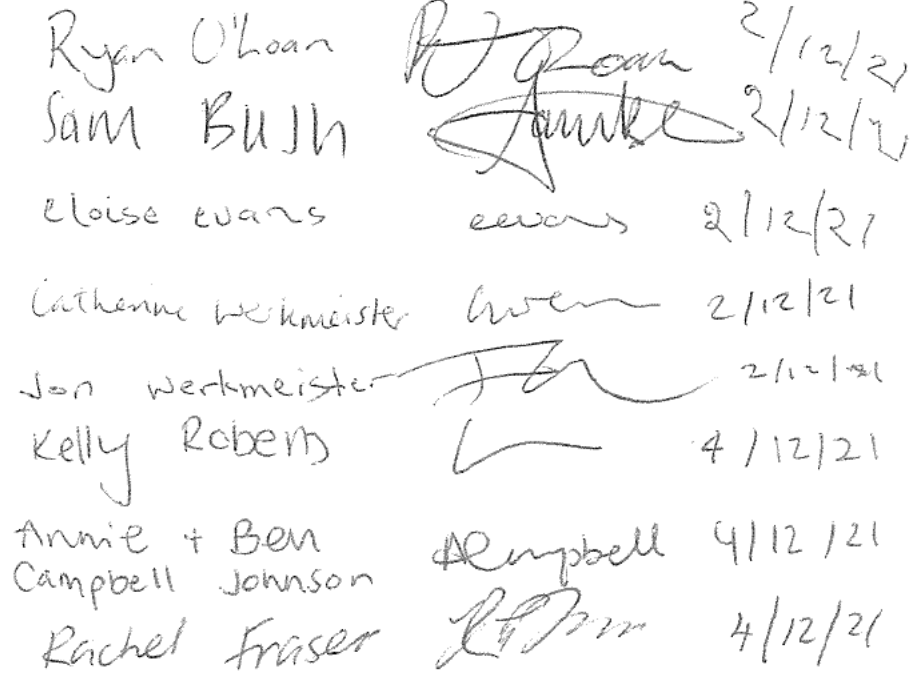 Ryan O'Loan 2/12/21
Sam Bush 2/12/21
eloise evans eevans 2/12/21
Catherine Werkmeister 2/12/21
Jon Werkmeister 2/12/21
Kelly Roberts 4/12/21
Annie + Ben ACampbell 4/12/21
Campbell Johnson
Rachel Fraser 4/12/21